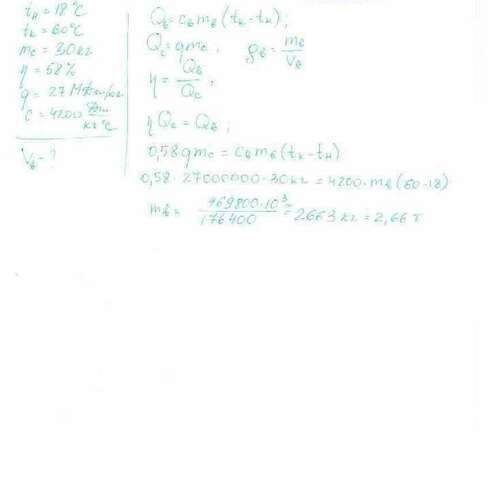 tн = 18 °C
tк = 60 °C
mc = 30 кг
η = 58 %
q = 27 МДж/кг
c = 4200 Дж/кг °C
Vв - ?
Qв = cв mв (tк - tн) ;
Qc = qmc , ρв = mв/Vв
η = Qв/Qc ,
η Qc = Qв ;
0,58 qmc = cв mв (tк - tн)
0,58 · 27000000 · 30 кг = 4200 · mв (60 - 18)
mв = 469800·10³/176400 = 2663 кг = 2,66 т